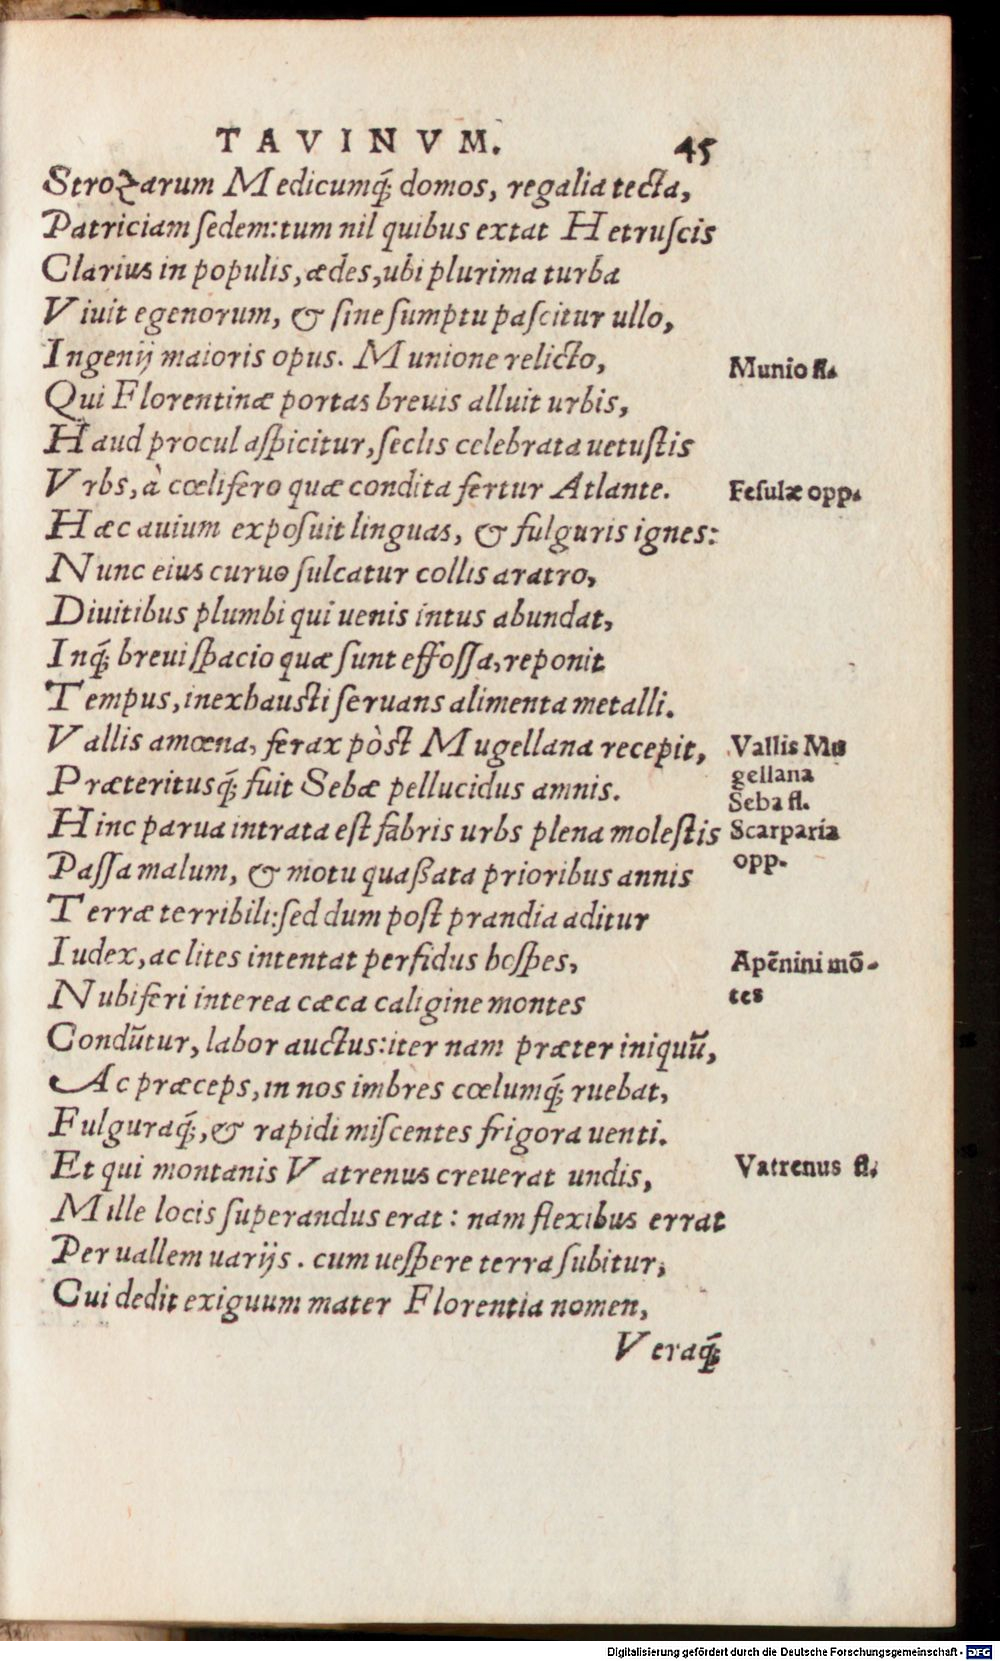 TAVINVM. 45
Strozarum Medicumq́; domos, regalia tecta,
Patriciam ſedem: tum nil quibus extat Hetruſcis
Clarius in populis, ædes, ubi plurima turba
Viuit egenorum, & ſine ſumptu paſcitur ullo,
Ingenij maioris opus. Munione relicto,
Munio fl.
Qui Florentinæ portas breuis alluit urbis,
Haud procul aſpicitur, ſeclis celebrata uetuſtis
Vrbs, à cœlifero quæ condita fertur Atlante.
Feſulæ opp.
Hæc auium expoſuit linguas, & fulguris ignes:
Nunc eius curuo ſulcatur collis aratro,
Diuitibus plumbi qui uenis intus abundat,
Inq́; breui ſpacio quæ ſunt effoſſa, reponit
Tempus, inexhausti ſeruans alimenta metalli.
Vallis amœna, ferax pòst Mugellana recepit,
Vallis Mu
gellana
Præteritusq́; fuit Sebæ pellucidus amnis.
Seba fl.
Hinc parua intrata eſt fabris urbs plena moleſtis
Scarparia
opp.
Paſſa malum, & motu quaßata prioribus annis
Terræ terribili: ſed dum poſt prandia aditur
Iudex, ac lites intentat perfidus hoſpes,
Apēnini mō-
tes
Nubiferi interea cæca caligine montes
Condūtur, labor auctus: iter nam præter iniquū,
Ac præceps, in nos imbres cœlumq́; ruebat,
Fulguraq́;, & rapidi miſcentes frigora uenti.
Et qui montanis Vatrenus creuerat undis,
Vatrenus fl.
Mille locis ſuperandus erat: nam flexibus errat
Per uallem uarijs. cum ueſpere terra ſubitur,
Cui dedit exiguum mater Florentia nomen,
Veraq́;
Digitalisierung gefördert durch die Deutsche Forschungsgemeinschaft - DFG